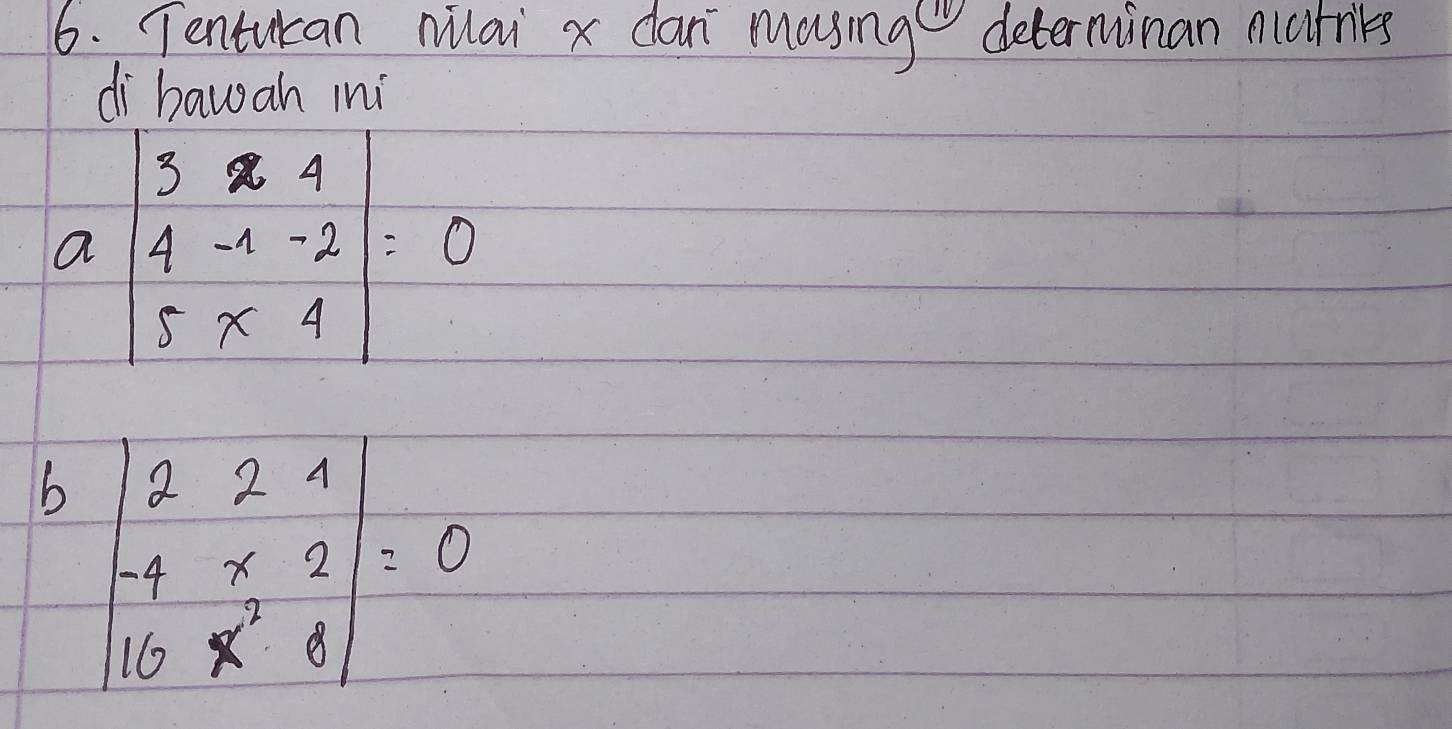 6. Tentukan nilai x dari masing" determinan matriks
di bawah ini
a | 3 2 4 |
| 4 -1 -2 | = 0
| 5 x 4 |
b | 2 2 1 |
| -4 x 2 | = 0
| 16 x² 8 |